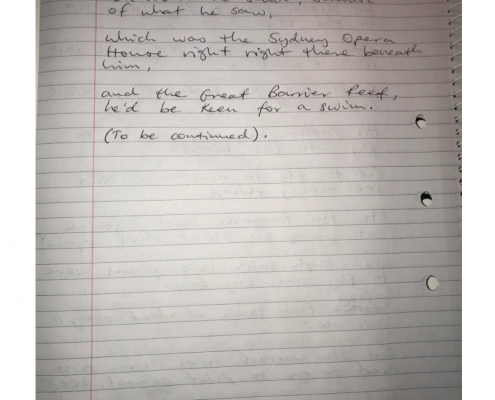 of what he saw,
which was the Sydney Opera
House right right there beneath
him,
and the Great Barrier Reef,
he'd be keen for a swim.
(To be continued).